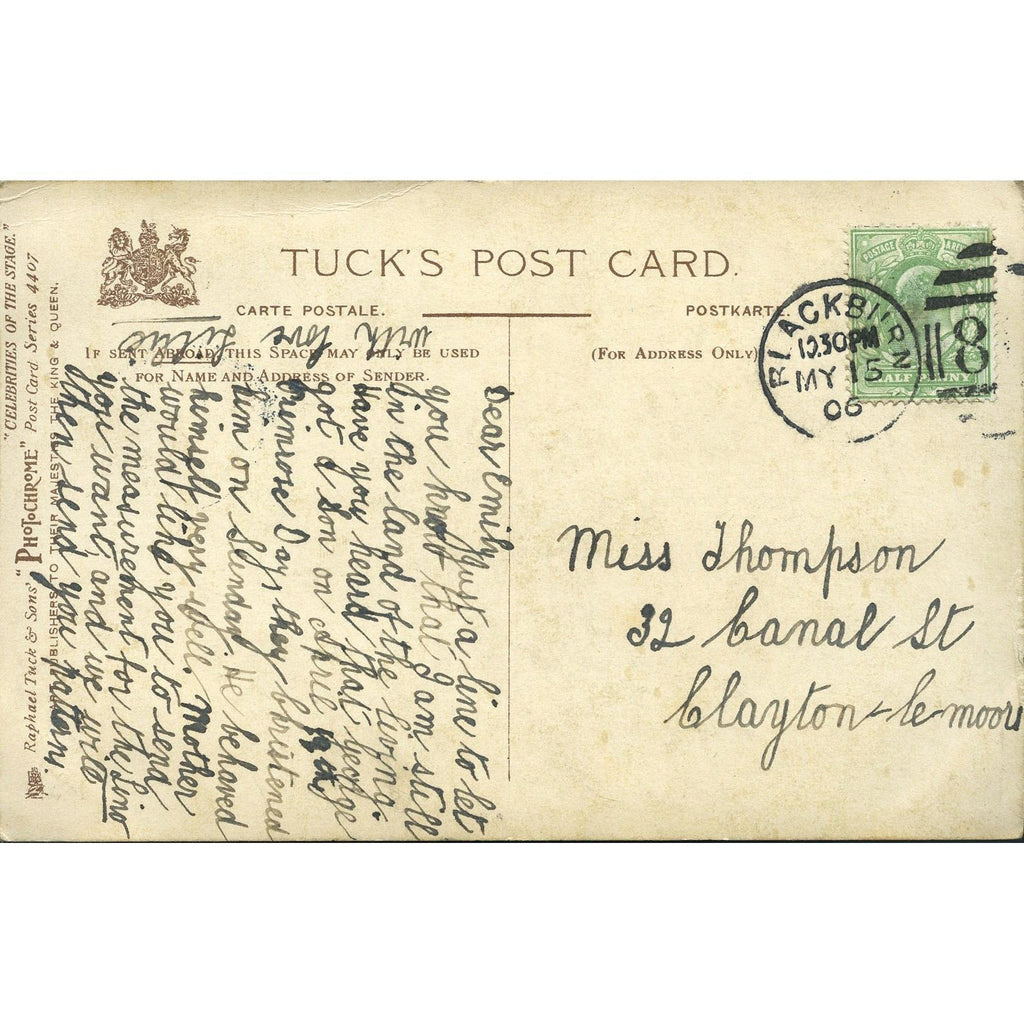 "CELEBRITIES OF THE STAGE."
Raphael Tuck & Sons' "PHOTOCHROME" Post Card Series 4407
ART PUBLISHERS TO THEIR MAJESTIES THE KING & QUEEN.
TUCK'S POST CARD.
CARTE POSTALE.
POSTKARTE.
IF SENT ABROAD, THIS SPACE MAY ONLY BE USED
FOR NAME AND ADDRESS OF SENDER.
(FOR ADDRESS ONLY)
POSTAGE
BLACKBURN
12.30PM
MY 15
06
118
Dear Emily Just a line to let
you know that I am still
in the land of the living.
Have you heard that George
got a son on April
Primrose Day, they christened
him on Sunday. He behaved
himself very well. Mother
would like you to send
the measurement for the Lino
you want, and we will
then send you pattern.
with love
Miss Thompson
32 Canal St
Clayton-le-moors